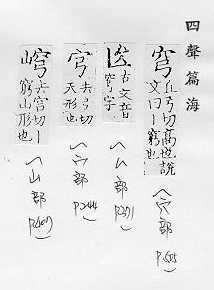 四聲篇海
穹 丘弓切高也說
文曰丨窮也
〈穴部
古文音
穹字
部
穹 去弓切
天形也
〈宀部
P.244
去宮切丨
窮山形也
〈山部